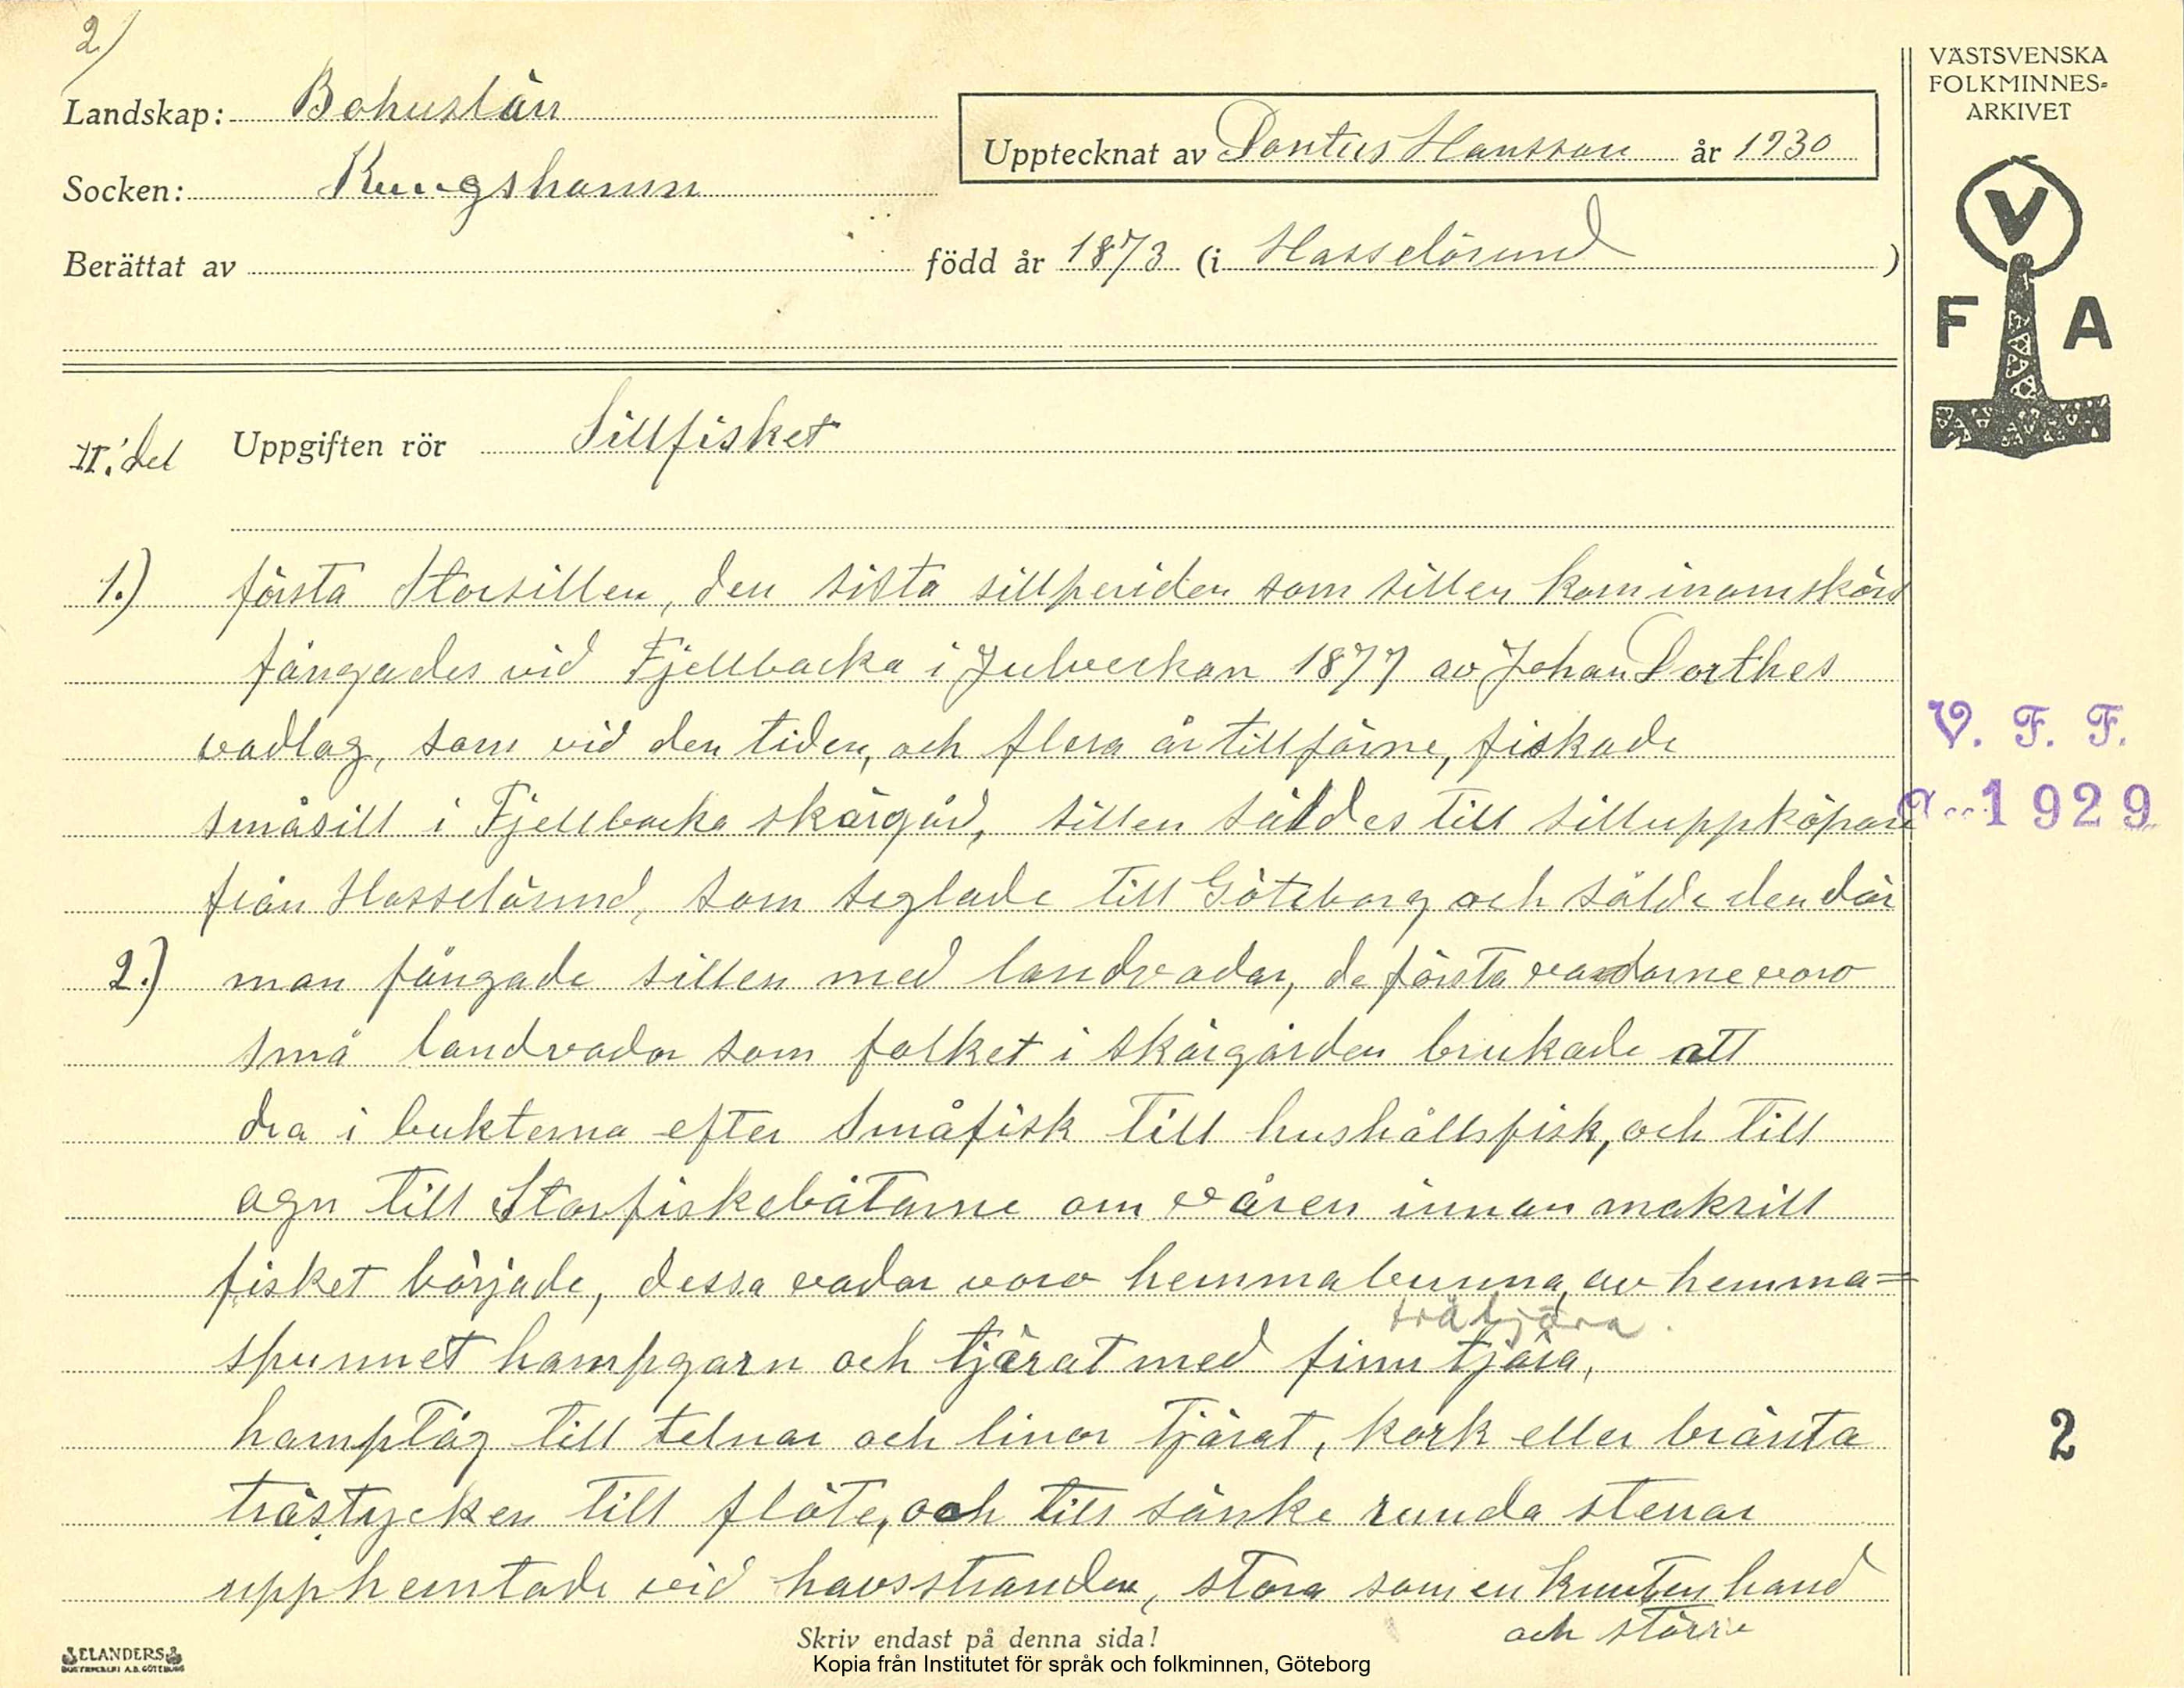 2/
Landskap: Bohuslän
Socken: Kungshamn
Berättat av
Upptecknat av Pontus Hansson år 1930
född år 1873 (i Hasselösund )
VÄSTSVENSKA
FOLKMINNES-
ARKIVET
V
F A
II. del Uppgiften rör Sillfisket
1.) första Storsillen, den sista sillperiden som sillen kom inomskärs
fångades vid Fjellbacka i Julveckan 1877 av Johan Porthes
vadlag, som vid den tiden, och flera år tillförne, fiskade
småsill i Fjellbacka skärgård, sillen såldes till silluppköpare
från Hasselösund, som seglade till Göteborg och sålde den där
2.) man fångade sillen med landvadar, de första vadarne voro
små landvadar som folket i skärgården brukade att
dra i bukterna efter småfisk till hushållsfisk, och till
agn till Storfiskebåtarne om våren innan makrill
fisket började, dessa vadar voro hemmabunna, av hemma=
trätjära.
spunnet hampgarn och tjärat med finn tjära,
hamptåg till telnar och linor tjärat, kork eller brända
trästycken till flöte, och till sänke runda stenar
upphemtade vid havsstranden, stora som en knuten hand
och större
V. F. F.
1929
2
Skriv endast på denna sida!
ELANDERS
BOKTRYCKERI A.B. GÖTEBORG
Kopia från Institutet för språk och folkminnen, Göteborg